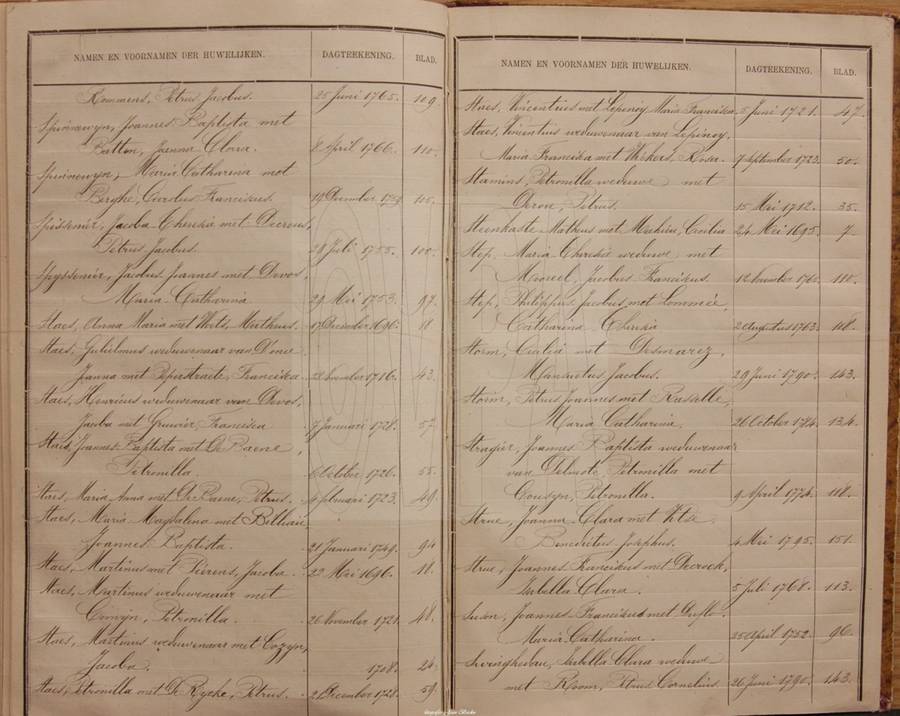 NAMEN EN VOORNAMEN DER HUWELIJKEN. DAGTEEKENING. BLAD.
Rommens, Petrus Jacobus. 25 Juni 1765. 109
Spinnewyn, Joannes Baptista met
Batton, Joanna Clara. 8 April 1766. 110.
Spinnewyn, Maria Catharina met
Berghe, Carolus Franciscus. 19 December 105.
Spissenir, Jacoba Theresia met Decrous,
Petrus Jacobus. 28 Juli 1755. 100.
Spyssenier, Jacobus Joannes met Devos,
Maria Catharina 29 Mei 1753. 97.
Staes, Anna Maria met Wets, Matheus. 17 December 1696. 11
Staes, Guliëlmus weduwenaar van
Joanna met Peperstraete, Francisca 28 November 1716. 43.
Staes, Henricus weduwenaar van Devos,
Jacoba met Francisca 7 Januari 1728. 57.
Staes, Joannes Baptista met De Baene,
Petronilla. 6 October 1726. 55.
Staes, Maria Anna met De Baene, Petrus. Februari 1723. 49.
Staes, Maria Magdalena met
Joannes Baptista. 21 Januari 1749. 94
Staes, Martinus met Pierens, Jacoba. 22 Mei 1696. 11.
Staes, Martinus weduwenaar met
Petronilla. 26 November 1721. 48.
Staes, Martinus weduwenaar met Cozyn,
Jacoba. 1708. 26.
Staes, Petronilla met De Rycke, Petrus. 21 December 1728. 59.
NAMEN EN VOORNAMEN DER HUWELIJKEN. DAGTEEKENING. BLAD.
Staes, Vincentius met Lepinoy Maria Francisca. 5 Juni 1721. 47.
Staes, Vincentius weduwenaar van Lepinoy,
Maria Franciska met Rosa. 7 September 1723. 50.
Stamins, Petronilla weduwe met
Deron, Petrus. 15 Mei 1712. 35.
Steenkaste Matheus met Mahieu, Cecilia 24 Mei 1695. 7
Step, Maria Theresia weduwe met
Jacobus Franciscus. 12 November 110.
Step, Philippus Jacobus met Lommée,
Catharina Theresia 2 Augustus 1763. 108.
Storm, Cecilia met Desmarez,
Mansuetus Jacobus. 29 Juni 1790. 143.
Storm, Petrus Joannes met Rasselle,
Maria Catharina. 26 October 1784. 134.
Stragier, Joannes Baptista weduwenaar
van Delmote Petronilla met
Cousyn, Petronilla. 9 April 1774. 118.
Strue, Joanna Clara met
Benedictus Josephus. 4 Mei 1795. 151.
Strue, Joannes Franciskus met Decrock,
Isabella Clara. 5 Juli 1768. 113.
Suson, Joannes Franciskus met Duflo.
Maria Catharina. 25 April 1752. 96.
Swinghedau, Isabella Clara weduwe
met Kroom, Petrus Cornelius. 26 Juni 1790. 143.